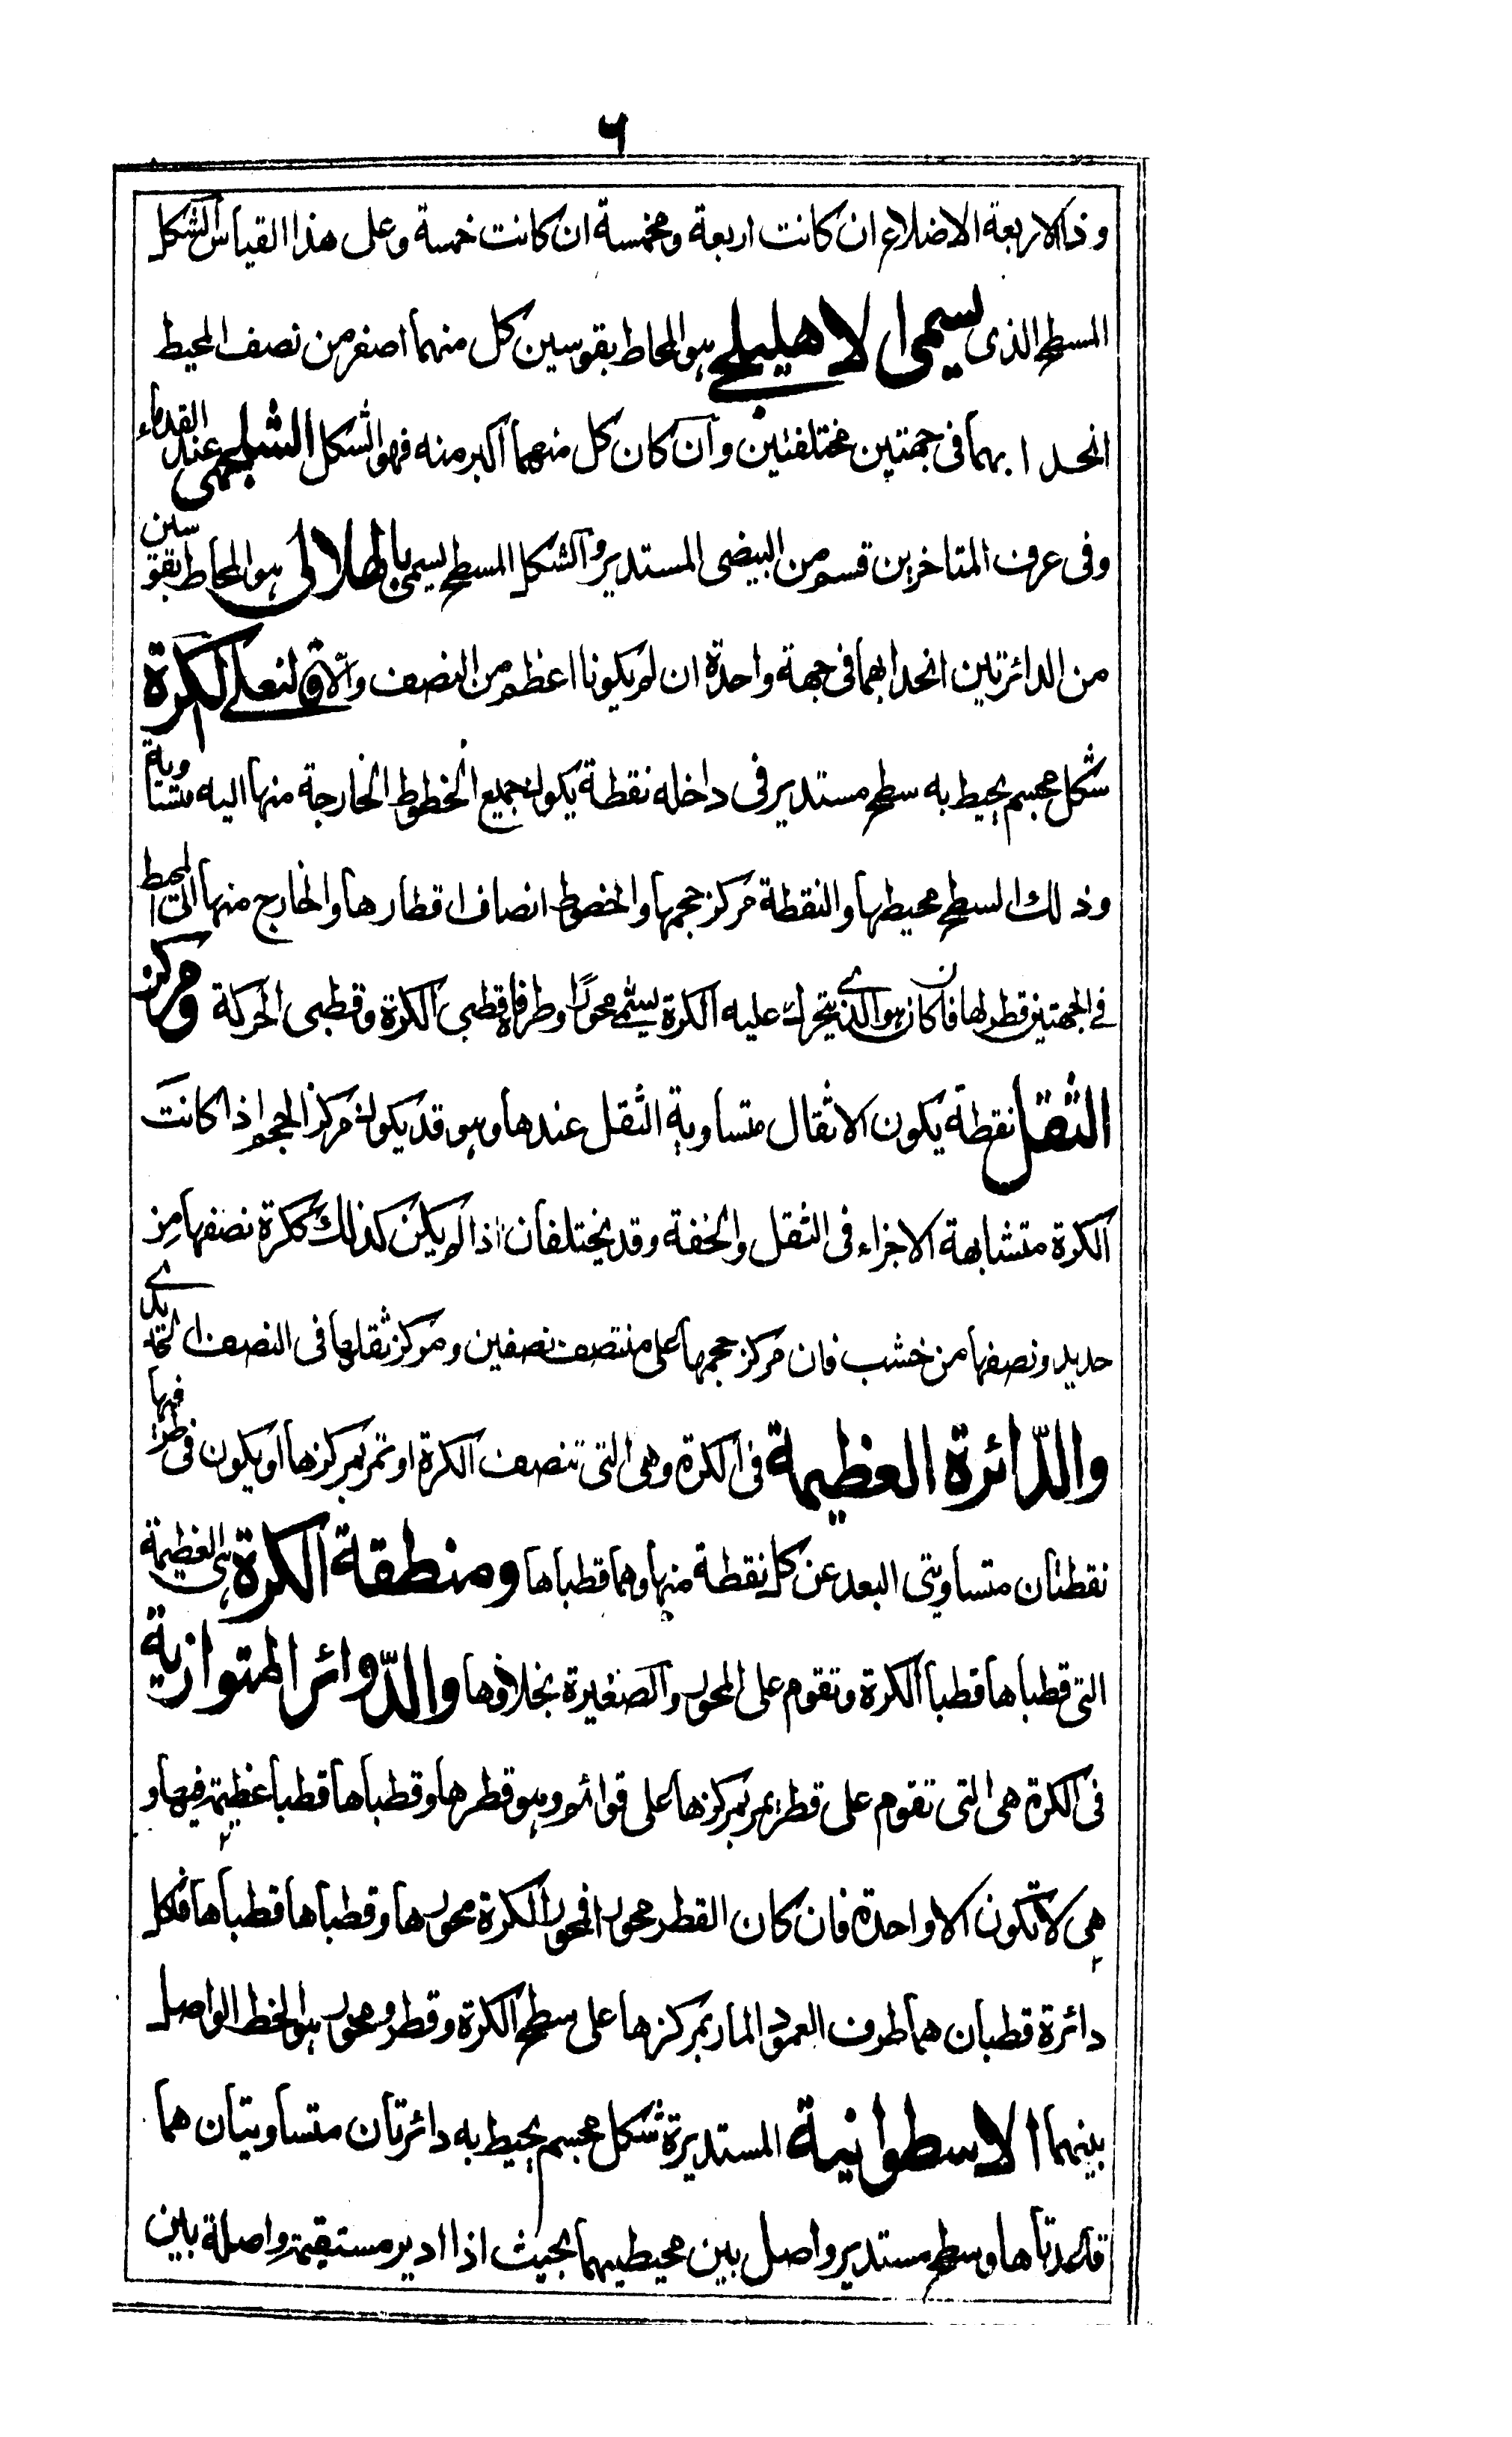 ٦
وذا الاربعة الاضلاع ان كانت اربعة ومخمسة ان كانت خمسة وعلى هذا القياس الشكل
المسطح الذى يسمى الاهليلجى هو المحاط بقوسين كل منهما اصغر من نصف المحيط
انحدابهما فى جهتين مختلفتين وان كان كل منهما اكبر منه فهو الشكل الشلجمى عند القدماء
وفى عرف المتاخرين قسم من البيضى المستدير والشكل المسطح يسمى بالهلالى هو المحاط بقوسين
من الدائرتين انحدابهما فى جهة واحدة ان لم يكونا اعظم من النصف والا فالنعلى الكرة
شكل مجسم يحيط به سطح مستدير فى داخله نقطة يكون جميع الخطوط الخارجة منها اليه متساوية
وذلك السطح محيطها والنقطة مركز حجمها والخطوط انصاف اقطارها والخارج منها الى المحيط
فى الجهتين قطر لها فان كان هو الذى يتحرك عليه الكرة يسمى محورًا وطرفاه قطبى الكرة وقطبى الحركة ومركز
الثقل نقطة يكون الاثقال متساوية الثقل عندها وهو قد يكون مركز الحجم اذا كانت
الكرة متشابهة الاجزاء فى الثقل والخفة وقد يختلفان اذا لم يكن كذلك ككرة نصفها من
حديد ونصفها من خشب فان مركز حجمها على منتصف نصفين ومركز ثقلها فى النصف الحديدى
والدّائرة العظيمة فى الكرة وهى التى تنصف الكرة او تمر بمركزها او يكون فى طرفيها
نقطتان متساويتى البعد عن كل نقطة منها وهما قطباها ومنطقة الكرة هى العظيمة
التى قطباها قطبا الكرة وتقوم على المحور والصغيرة بخلافها والدّوائر المتوازية
فى الكرة هى التى تقوم على قطر يمر بمركزها على قوائم وهو قطرها وقطباها قطبا عظيمة فيها و
هى لا تكون الا واحدة فان كان القطر محورا فمحور الكرة محورها وقطباها قطباها فلكل
دائرة قطبان هما طرف العمود المار بمركزها على سطح الكرة وقطر ومحور هو الخط الواصل
بينهما الاسطوانية المستديرة شكل مجسم يحيط به دائرتان متساويتان هما
قاعدتاها وسطح مستدير واصل بين محيطيهما بحيث اذا ادير مستقيمة واصلة بين